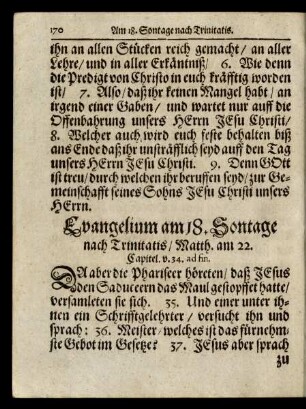 170 Am 18. Sontage nach Trinitatis.
ihn an allen Stücken reich gemacht/ an aller
Lehre/ und in aller Erkäntniß/ 6. Wie denn
die Predigt von Christo in euch kräfftig worden
ist/ 7. Also/ daß ihr keinen Mangel habt/ an
irgend einer Gaben/ und wartet nur auff die
Offenbahrung unsers HErrn JEsu Christi/
8. Welcher auch wird euch feste behalten biß
ans Ende daß ihr unsträfflich seyd auff den Tag
unsers HErrn JEsu Christi. 9. Denn GOtt
ist treu/ durch welchen ihr beruffen seyd/ zur Ge-
meinschafft seines Sohns JEsu Christi unsers
HErrn.
Evangelium am 18. Sontage
nach Trinitatis/ Matth. am 22.
Capitel. v. 34. ad fin.
DA aber die Phariseer höreten/ daß JEsus
den Saduceern das Maul gestopffet hatte/
versamleten sie sich. 35. Und einer unter ih-
nen ein Schrifftgelehrter/ versucht ihn und
sprach: 36. Meister/ welches ist das fürnehm-
ste Gebot im Gesetze? 37. JEsus aber sprach
zu